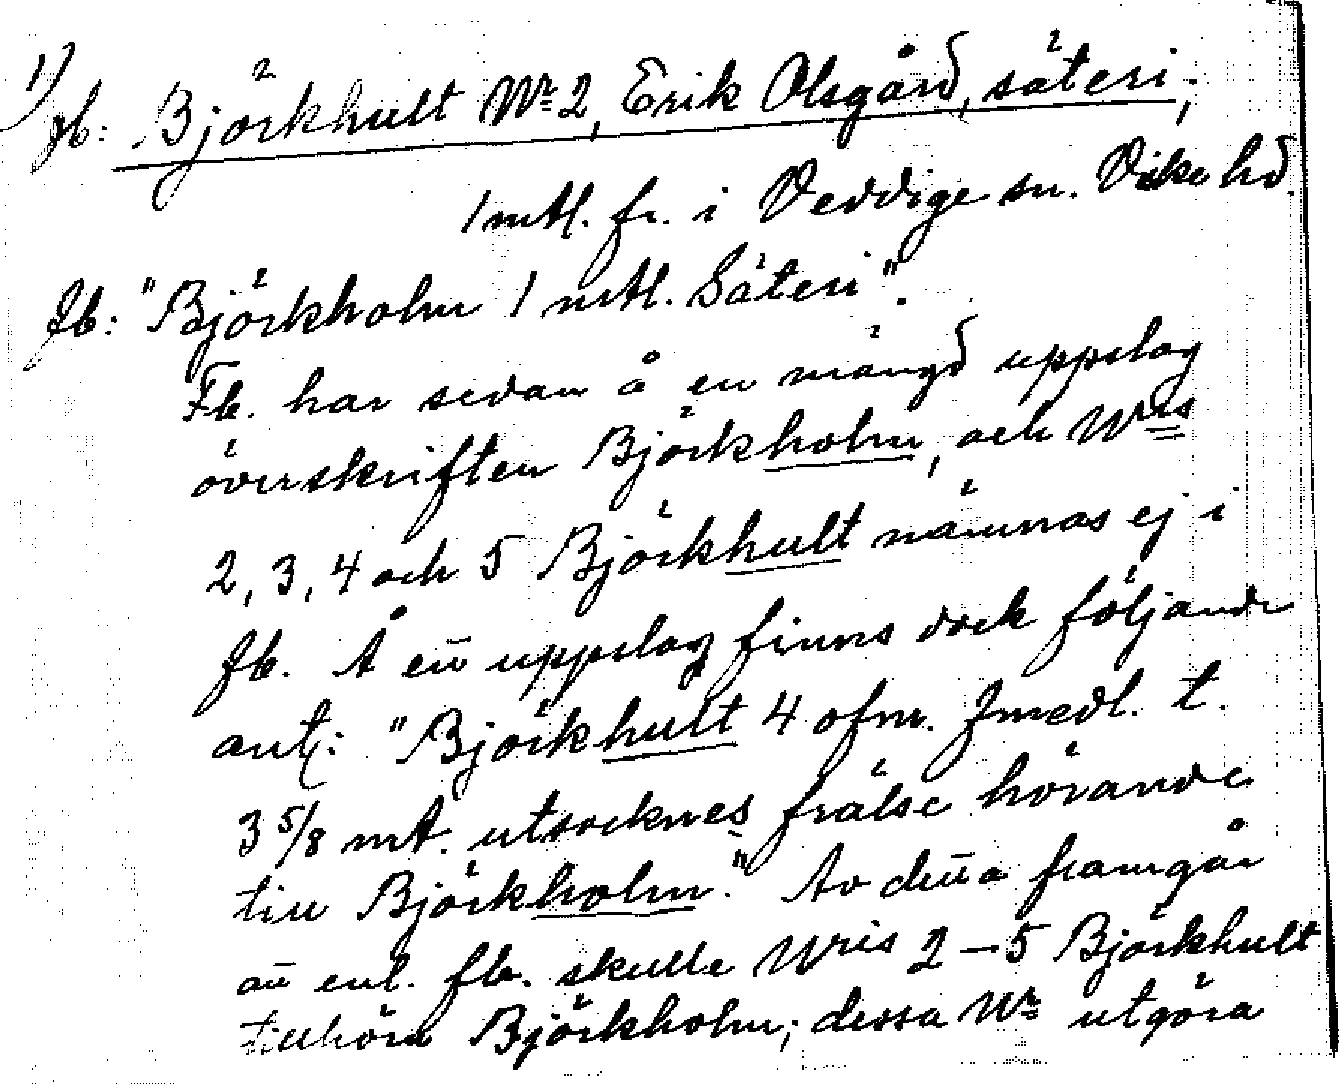 1) jb: Björkhult Nr 2, Erik Olsgård, säteri;
1 mtl. fr. i Veddige sn. Viske hd.
fb: "Björkholm 1 mtl. Säteri".
Fb. har sedan å en mängd uppslag
överskriften Björkholm, och Nris
2, 3, 4 och 5 Björkhult nämnas ej i
fb. Å ett uppslag finns dock följande
ant: "Björkhult 4 ofm. Jmedl. t.
3 5/8 mt. utsocknes frälse hörande
till Björkholm." Av detta framgår
att enl. fb. skulle Nris 2–5 Björkhult
tillhöra Björkholm; dessa Nr utgöra